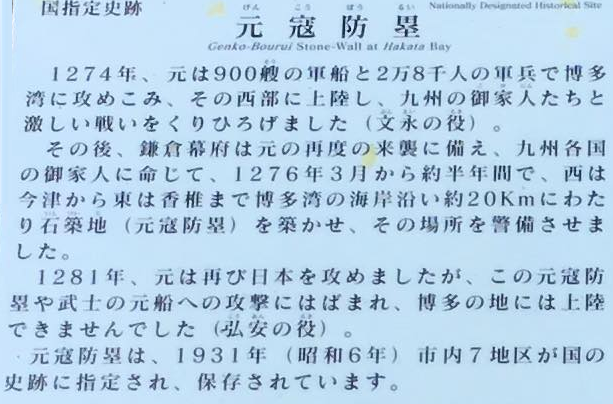 国指定史跡
Nationally Designated Historical Site
げん こう ぼう るい
元寇防塁
Genko-Bourui Stone-Wall at Hakata Bay
1274年、元は900艘の軍船と2万8千人の軍兵で博多
湾に攻めこみ、その西部に上陸し、九州の御家人たちと
激しい戦いをくりひろげました（文永の役）。
その後、鎌倉幕府は元の再度の来襲に備え、九州各国
の御家人に命じて、1276年3月から約半年間で、西は
今津から東は香椎まで博多湾の海岸沿い約20Kmにわた
り石築地（元寇防塁）を築かせ、その場所を警備させま
した。
1281年、元は再び日本を攻めましたが、この元寇防
塁や武士の元船への攻撃にはばまれ、博多の地には上陸
できませんでした（弘安の役）。
元寇防塁は、1931年（昭和6年）市内7地区が国の
史跡に指定され、保存されています。